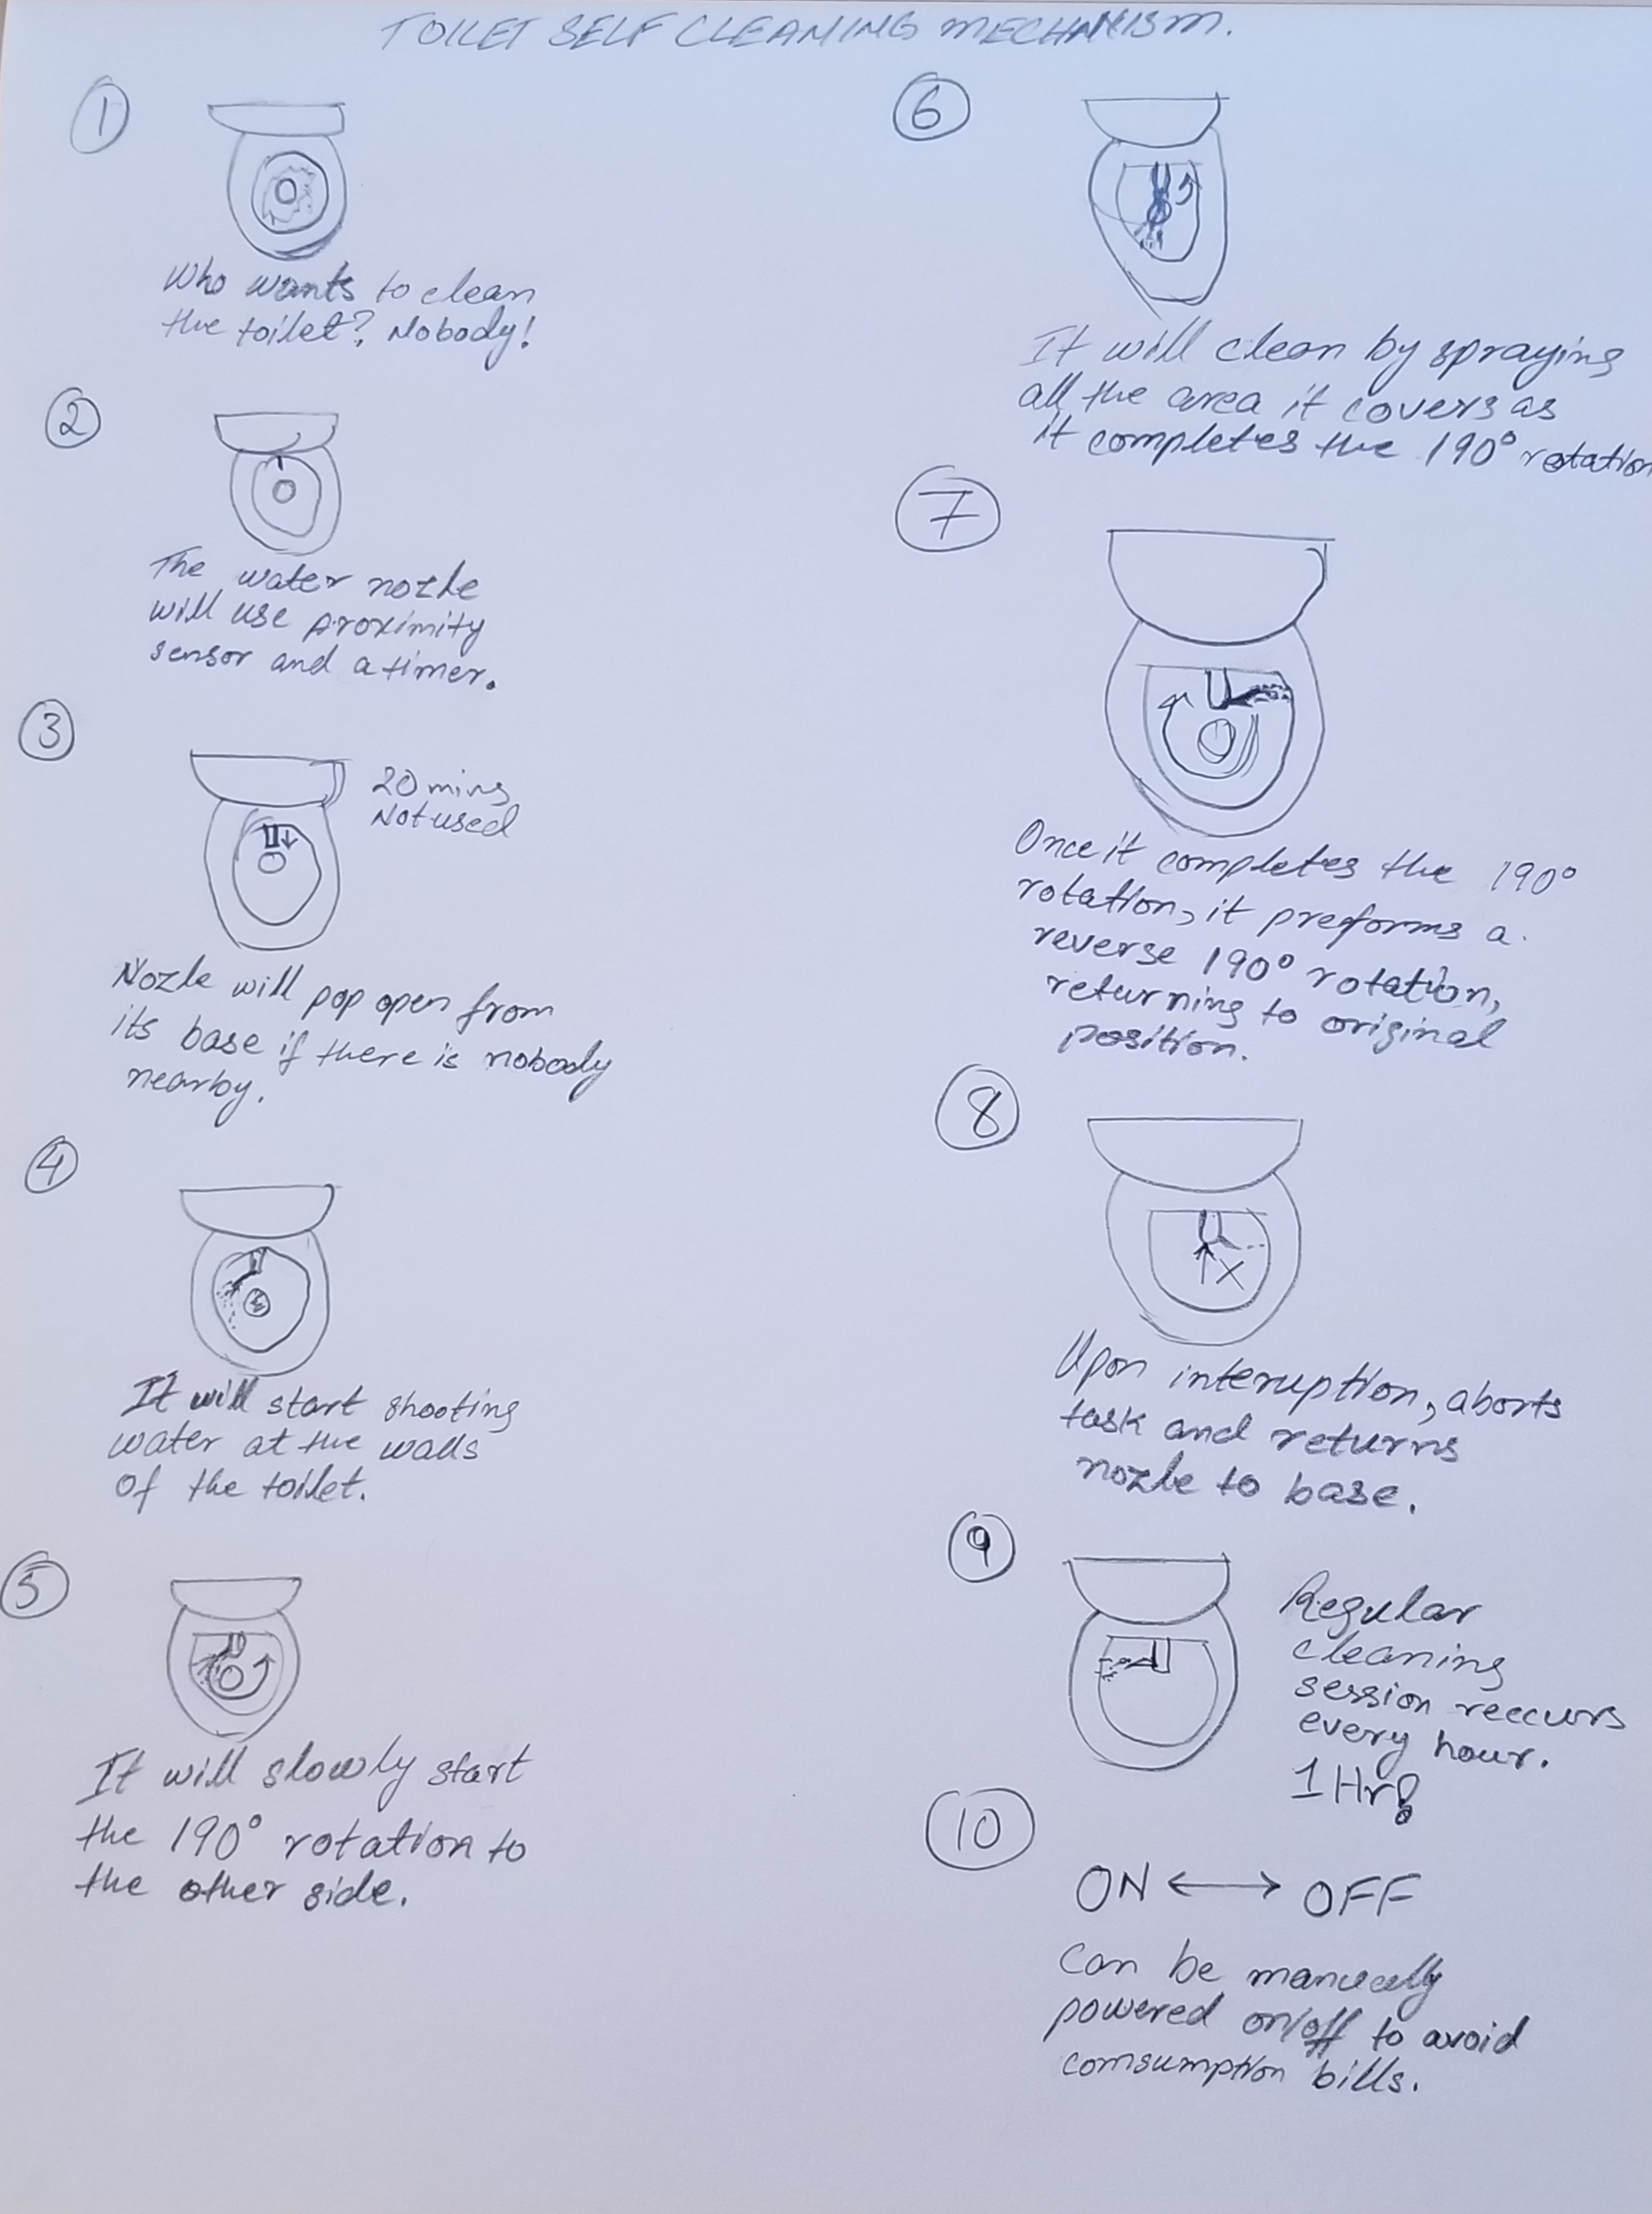 TOILET SELF CLEANING MECHANISM.
1
Who wants to clean
the toilet? Nobody!
2
The water nozzle
will use proximity
sensor and a timer.
3
20 mins
Not used
Nozzle will pop open from
its base if there is nobody
nearby.
4
It will start shooting
water at the walls
of the toilet.
5
It will slowly start
the 190° rotation to
the other side.
6
It will clean by spraying
all the area it covers as
it completes the 190° rotation
7
Once it completes the 190°
rotation, it preforms a
reverse 190° rotation,
returning to original
position.
8
Upon interuption, aborts
task and returns
nozzle to base.
9
Regular
cleaning
session reccurs
every hour.
1 Hr!
10
ON ↔ OFF
Can be manually
powered on/off to avoid
comsumption bills.